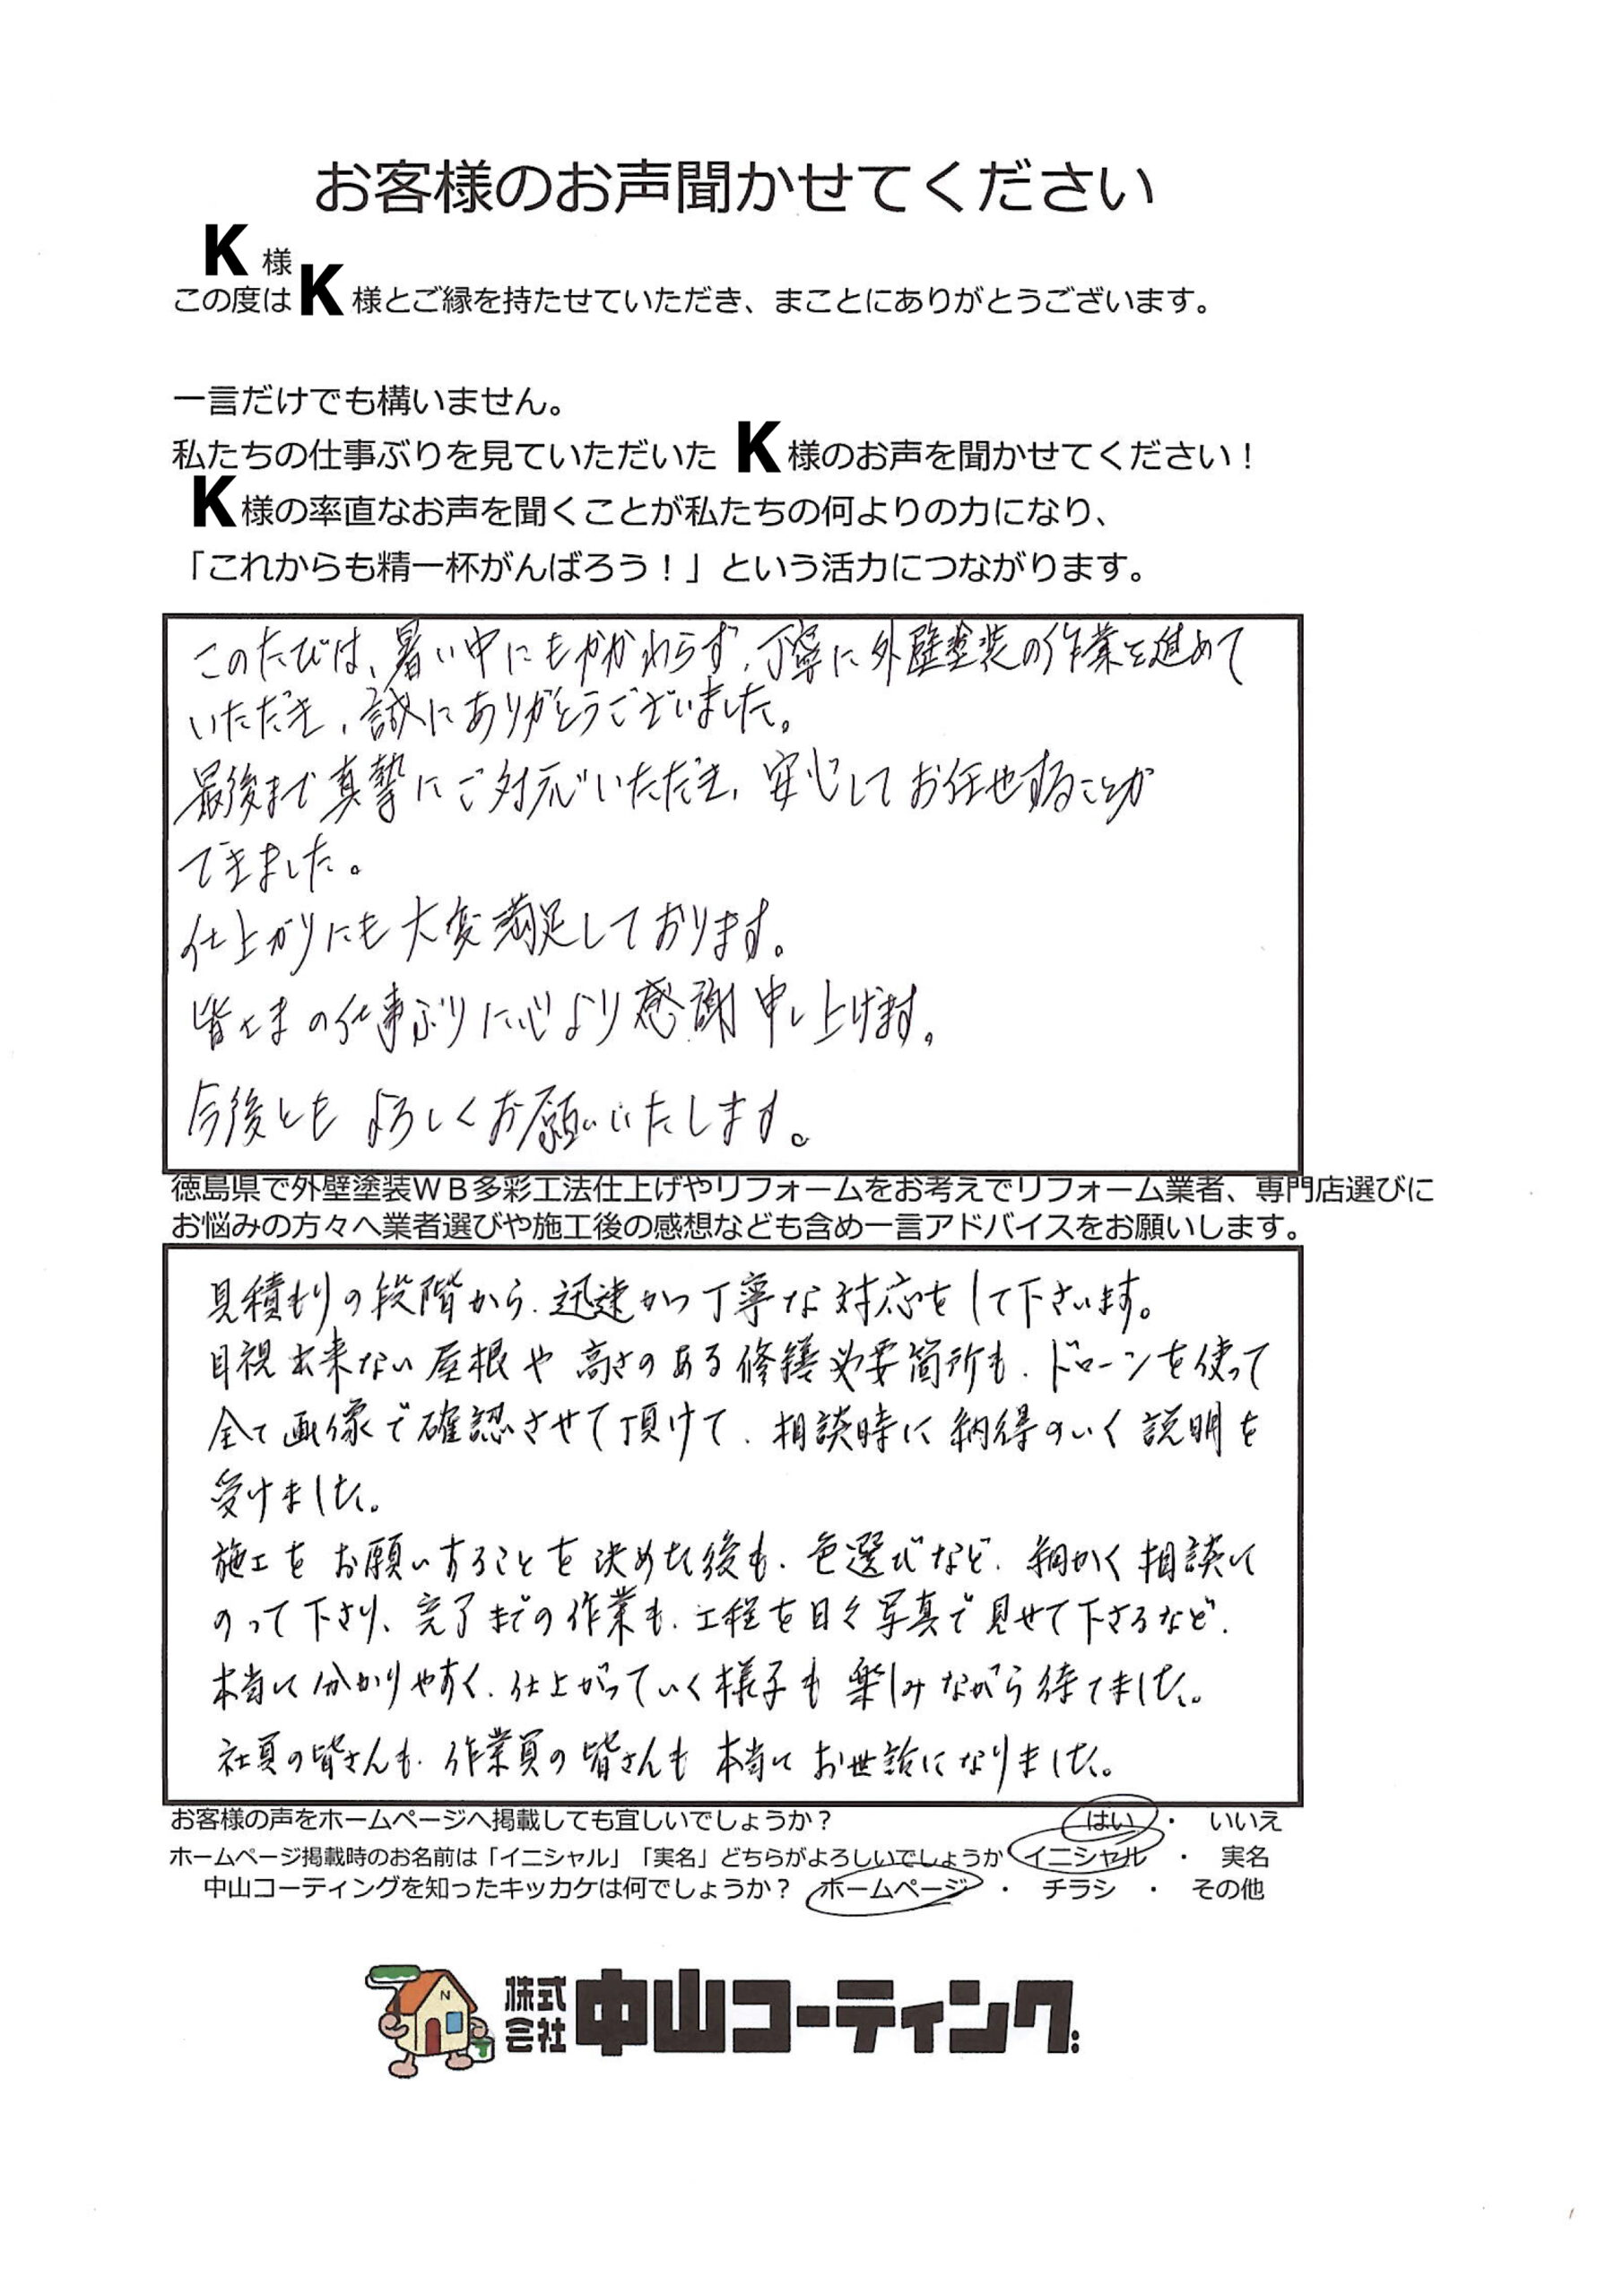 お客様のお声聞かせてください
K 様
この度は K 様とご縁を持たせていただき、まことにありがとうございます。
一言だけでも構いません。
私たちの仕事ぶりを見ていただいた K 様のお声を聞かせてください！
K 様の率直なお声を聞くことが私たちの何よりの力になり、
「これからも精一杯がんばろう！」という活力につながります。
このたびは、暑い中にもかかわらず、丁寧に外壁塗装の作業を進めて
いただき、誠にありがとうございました。
最後まで真摯にご対応いただき、安心してお任せすることが
できました。
仕上がりにも大変満足しております。
皆さまの仕事ぶりに心より感謝申し上げます。
今後ともよろしくお願いいたします。
徳島県で外壁塗装ＷＢ多彩工法仕上げやリフォームをお考えでリフォーム業者、専門店選びに
お悩みの方々へ業者選びや施工後の感想なども含め一言アドバイスをお願いします。
見積もりの段階から、迅速かつ丁寧な対応をして下さいます。
目視出来ない屋根や高さのある修繕必要箇所も、ドローンを使って
全て画像で確認させて頂けて、相談時に納得のいく説明を
受けました。
施工をお願いすることを決めた後も、色選びなど、細かく相談に
のって下さり、完了までの作業も、工程を日々写真で見せて下さるなど、
本当に分かりやすく、仕上がっていく様子も楽しみながら待てました。
社員の皆さんも、作業員の皆さんも本当にお世話になりました。
お客様の声をホームページへ掲載しても宜しいでしょうか？ はい ・ いいえ
ホームページ掲載時のお名前は「イニシャル」「実名」どちらがよろしいでしょうか イニシャル ・ 実名
中山コーティングを知ったキッカケは何でしょうか？ ホームページ ・ チラシ ・ その他
N
株式会社 中山コーティング